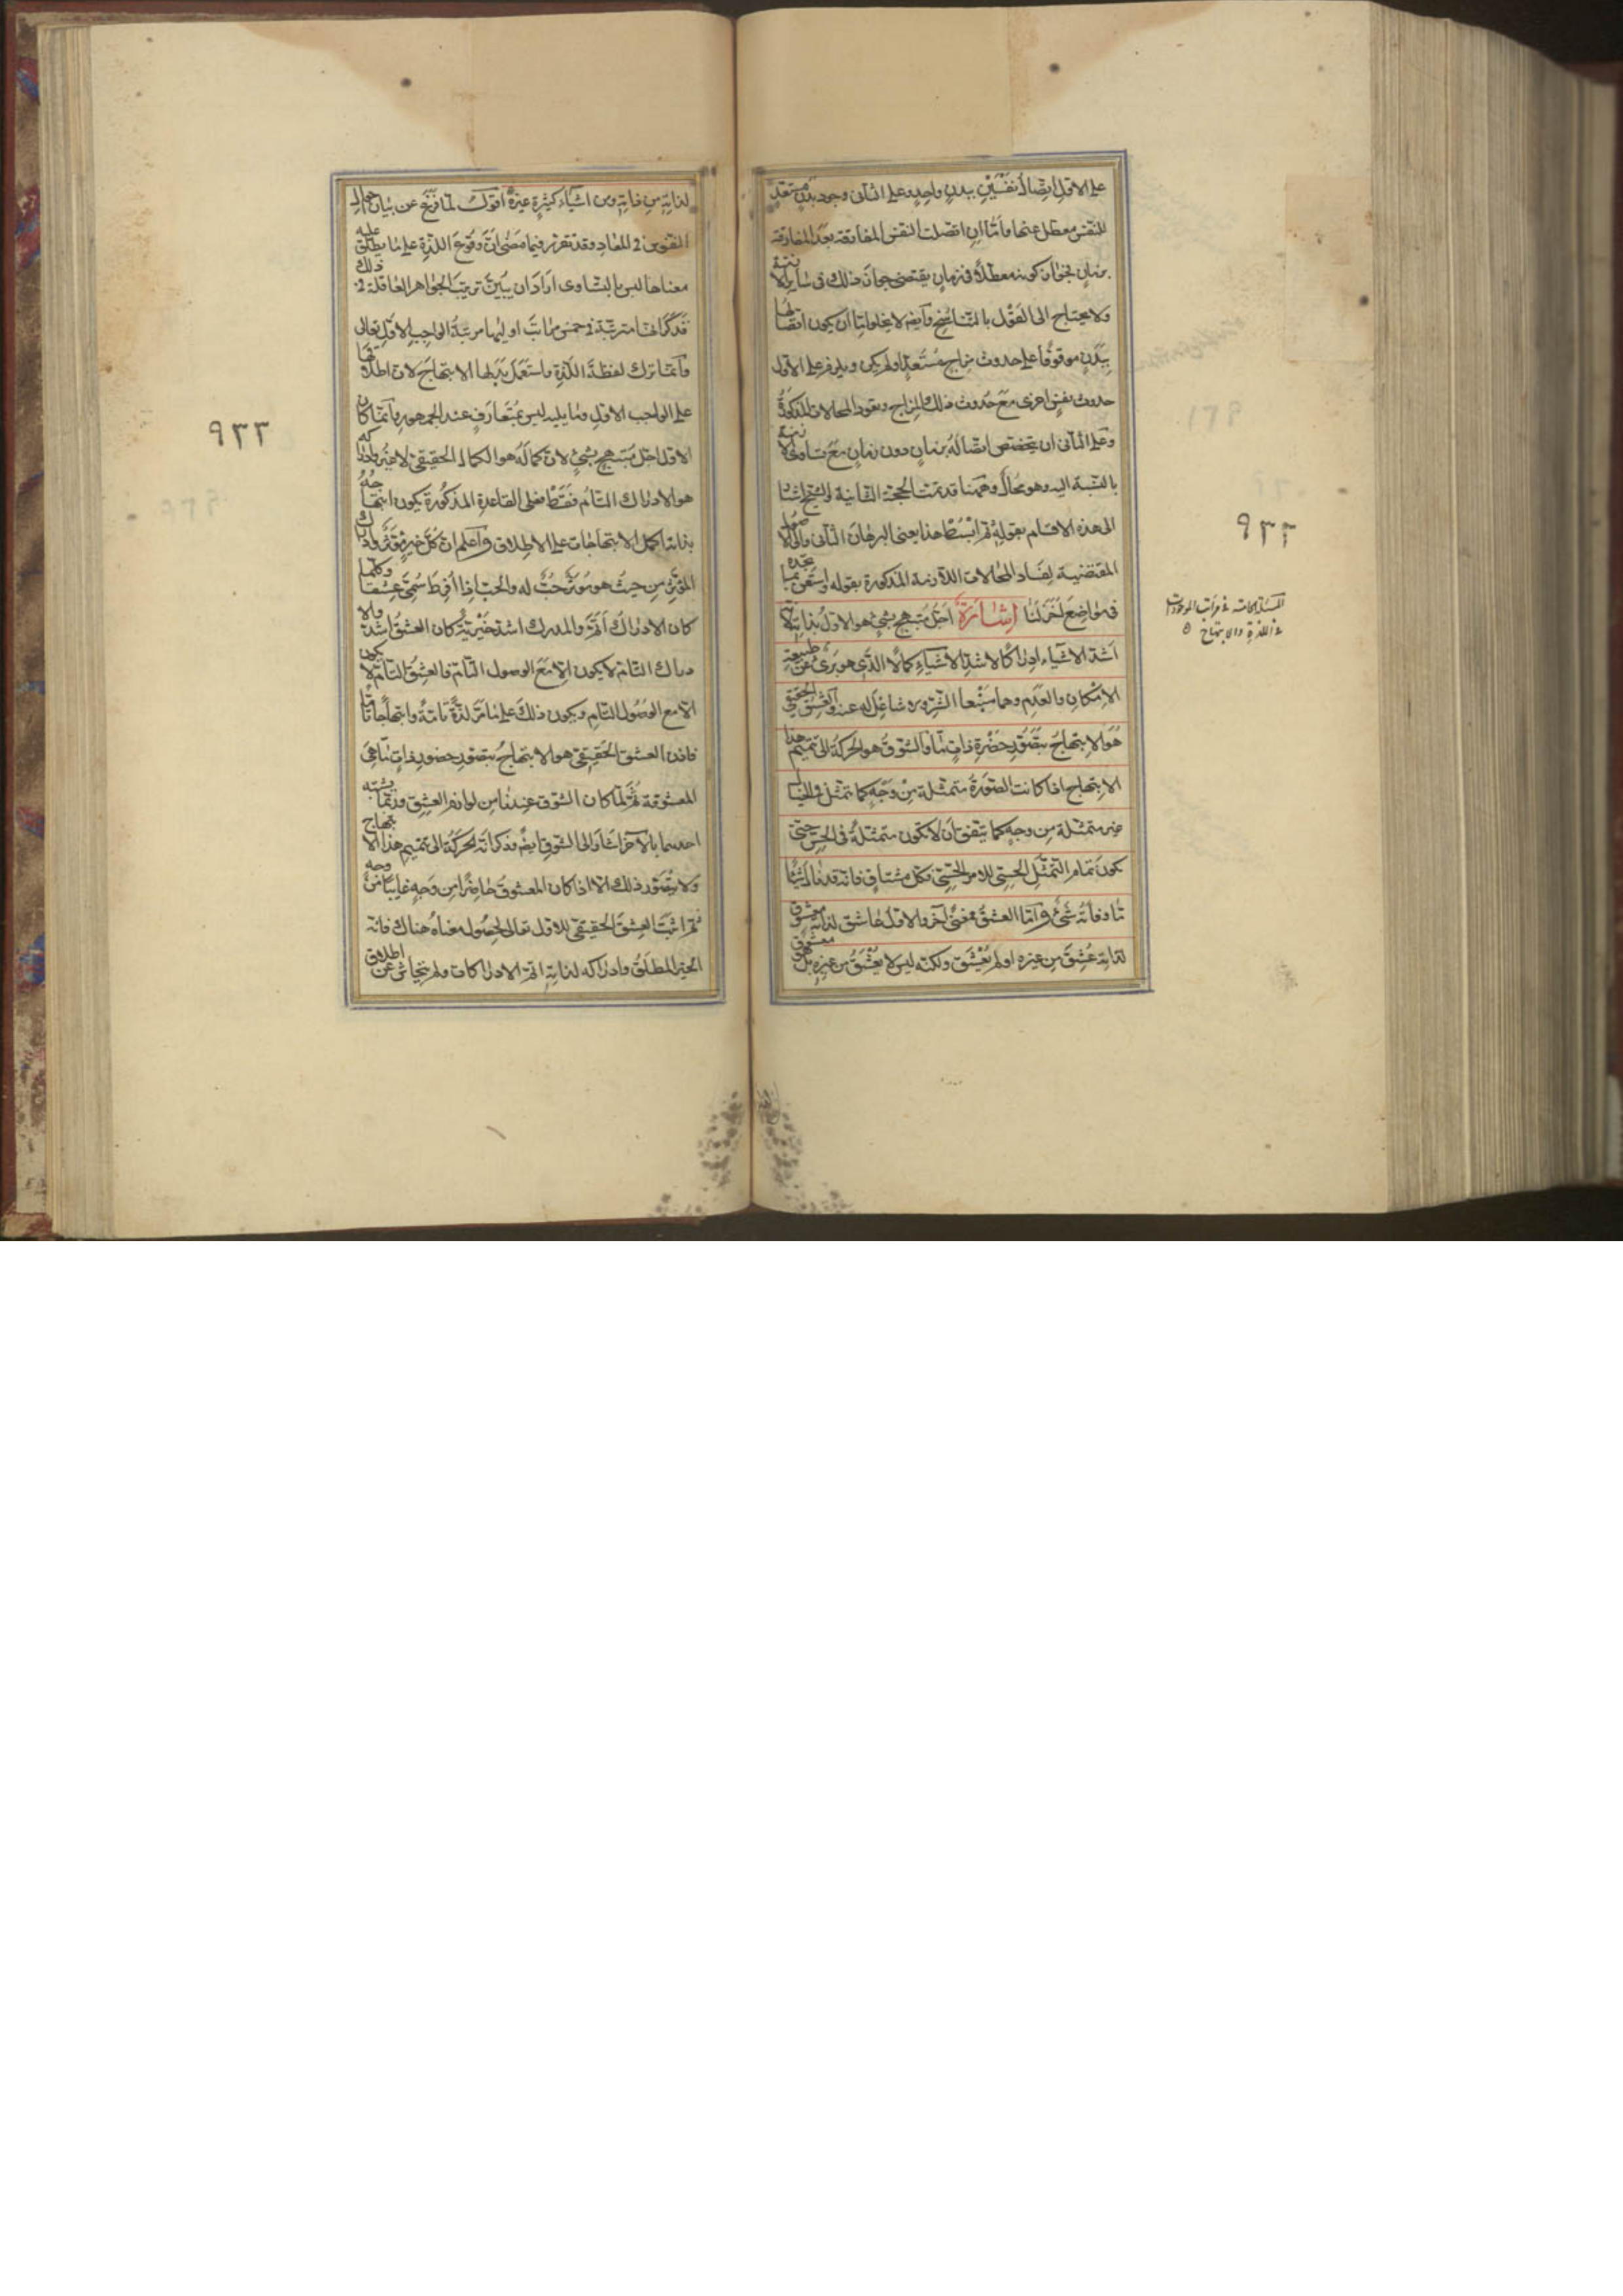 على الاول اتصال نفسين ببدن واحد وعلى الثانى وجود بدن مستعد
للنفس معطل عنها واما ان اتصلت النفس المفارقة بعد المفارقة
بزمان فجواز كونه معطلا فى زمان يقتضى جواز ذلك فى سائر الازمنة
ولا يحتاج الى القول بالتناسخ وايضا لا يخلو اما ان يكون اتصالها
ببدن موقوفا على حدوث مزاج مستعد او لم يكن ويلزم على الاول
حدوث نفس اخرى مع حدوث ذلك المزاج ويعود المحالات المذكورة
وعلى الثانى ان يتخصص اتصاله بزمان دون زمان مع تساوى الازمنة
بالنسبة اليه وهو محال وههنا قد تمت الحجة الثانية والشيخ اشار
الى هذه الاقسام بقوله ثم ابسط هذا يعنى البرهان الثانى والى الاصول
المقتضية لفساد المحالات اللازمة المذكورة بقوله واستعن بما تجده
فى مواضع اخر لنا اشارة اجل مبتهج بشئ هو الاول بذاته لانه
اشد الاشياء ادراكا لاشد الاشياء كمالا الذى هو برئ عن طبيعة
الامكان والعدم وهما منبعا الشر ولا شاغل له عنه والعشق الحقيقى
هو الابتهاج بتصور حضرة ذات ما والشوق هو الحركة الى تتميم هذا
الابتهاج اذا كانت الصورة متمثلة من وجه كما تتمثل فى الخيال
غير متمثلة من وجه كما يتفق ان لا تكون متمثلة فى الحس حتى
يكون تمام التمثل الحسى للامر الحسى فكل مشتاق فانه قد نال شيئا
ما وفاته شئ واما العشق فمعنى آخر والاول عاشق لذاته معشوق
لذاته عشق من غيره او لم يعشق ولكنه ليس لا يعشق من غيره بل هو معشوق
المسئلة الخامسة فى مراتب الموجودات
فى اللذة والابتهاج
٩٣٣
لذاته من ذاته ومن اشياء كثيرة غيره اقول لما فرغ عن بيان احوال
النفوس فى المعاد وقد تقرر فيما مضى ان وقوع اللذة على ما يطلق عليه
معناها ليس بالتساوى اراد ان يبين ترتيب الجواهر العاقلة فى ذلك
فذكر انها مترتبة فى خمس مراتب اوليها مرتبة الواجب الاول تعالى
وانما ترك لفظة اللذة واستعمل بدلها الابتهاج لان اطلاقها
على الواجب الاول وما يليه ليس بمتعارف عند الجمهور وانما كان
الاول اجل مبتهج بشئ لان كماله هو الكمال الحقيقى لا غير وادراكه
هو الادراك التام فقط فعلى القاعدة المذكورة يكون ابتهاجه
بذاته اكمل الابتهاجات على الاطلاق واعلم ان كل خير مؤثر وادراك
المؤثر من حيث هو مؤثر حب له والحب اذا افرط سمى عشقا وكلما
كان الادراك اتم والمدرك اشد خيرية كان العشق اشد والا
دراك التام لا يكون الا مع الوصول التام فالعشق التام لا يكون
الا مع الوصول التام ويكون ذلك على ما مر لذة تامة وابتهاجا تاما
فاذن العشق الحقيقى هو الابتهاج بتصور حضور ذات ما هى
المعشوقة ثم لما كان الشوق عندنا من لوازم العشق وربما يشتبه
احدهما بالآخر اشار الى الشوق ايضا وذكر انه الحركة الى تتميم هذا الابتهاج
ولا يتصور ذلك الا اذا كان المعشوق حاضرا من وجه غايبا من وجه
ثم اثبت العشق الحقيقى للاول تعالى لحصول معناه هناك فانه
الخير المطلق وادراكه لذاته اتم الادراكات ولم يتحاش عن اطلاق
٩٣٣